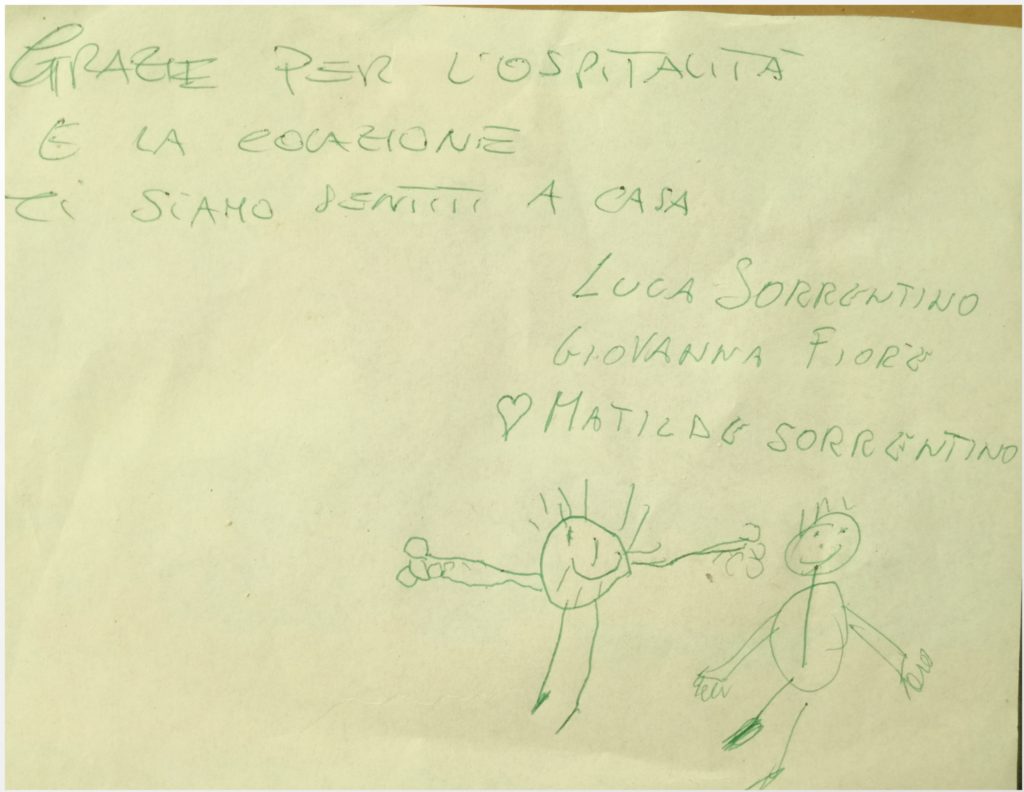 GRAZIE PER L'OSPITALITÀ
E LA COLAZIONE
Ci SiAMO SENTITI A CASA
LUCA SORRENTINO
GIOVANNA FIORE
♡ MATILDE SORRENTINO